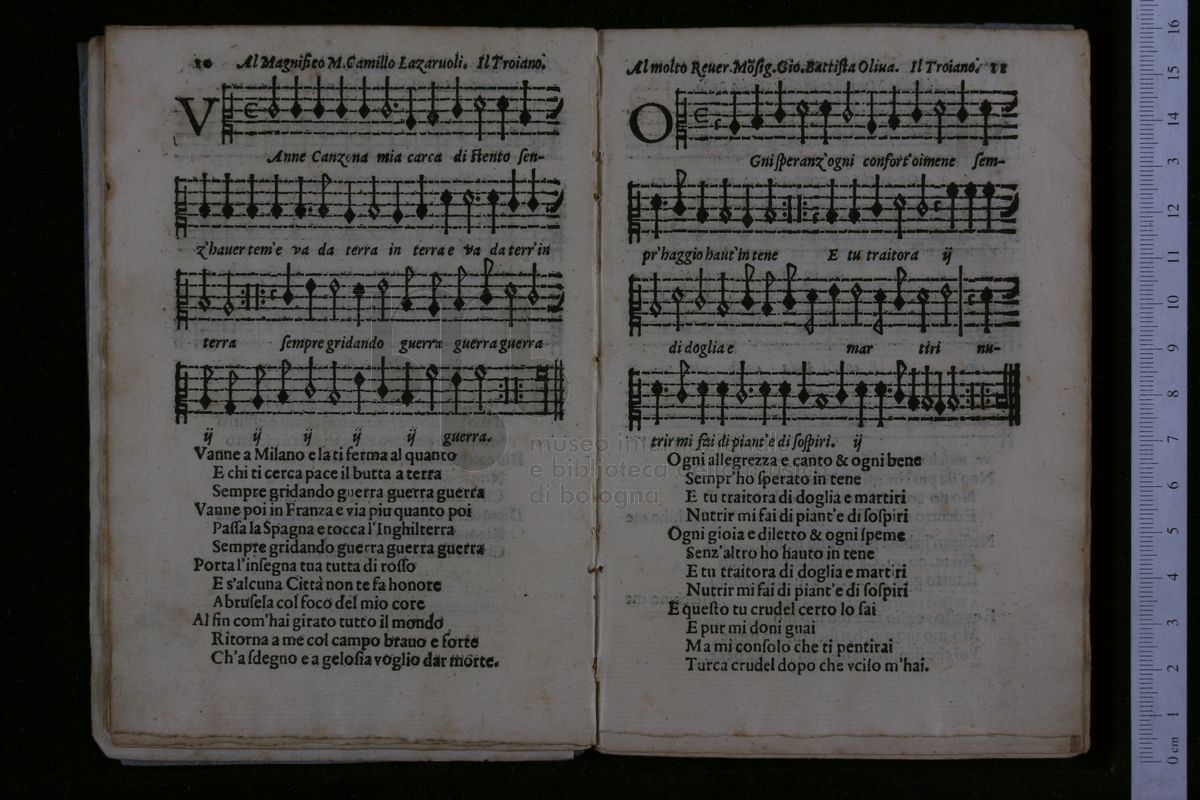 10 Al Magnifico M. Camillo Lazaruoli. Il Troiano.
VAnne Canzona mia carca di ſtento ſen-
z'hauer tem'e va da terra in terra e va da terr'in
terra ſempre gridando guerra guerra guerra
ij ij ij ij ij guerra.
Vanne a Milano e la ti ferma al quanto
E chi ti cerca pace il butta a terra
Sempre gridando guerra guerra guerra
Vanne poi in Franza e via piu quanto poi
Paſſa la Spagna e tocca l'Inghilterra
Sempre gridando guerra guerra guerra
Porta l'inſegna tua tutta di roſſo
E s'alcuna Città non te fa honore
Abruſela col foco del mio core
Al fin com'hai girato tutto il mondo
Ritorna a me col campo brauo e forte
Ch'a ſdegno e a geloſia voglio dar morte.
Al molto Reuer. Mõſig. Gio. Battiſta Oliua. Il Troiano. 11
OGni ſperanz'ogni confort'oimene ſem-
pr'haggio haut'in tene E tu traitora ij
di doglia e mar tiri nu-
trir mi fai di piant'e di ſoſpiri. ij
Ogni allegrezza e canto & ogni bene
Sempr'ho ſperato in tene
E tu traitora di doglia e martiri
Nutrir mi fai di piant'e di ſoſpiri
Ogni gioia e diletto & ogni ſpeme
Senz'altro ho hauto in tene
E tu traitora di doglia e martiri
Nutrir mi fai di piant'e di ſoſpiri
E queſto tu crudel certo lo ſai
E pur mi doni guai
Ma mi conſolo che ti pentirai
Turca crudel dopo che vciſo m'hai.
museo internazionale
e biblioteca della musica
di bologna
0 cm 1 2 3 4 5 6 7 8 9 10 11 12 13 14 15 16